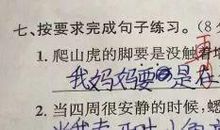 七、按要求完成句子练习。(8
1. 爬山虎的脚要是没触着
我妈妈要是在
2. 当四周很安静的时候，蟋